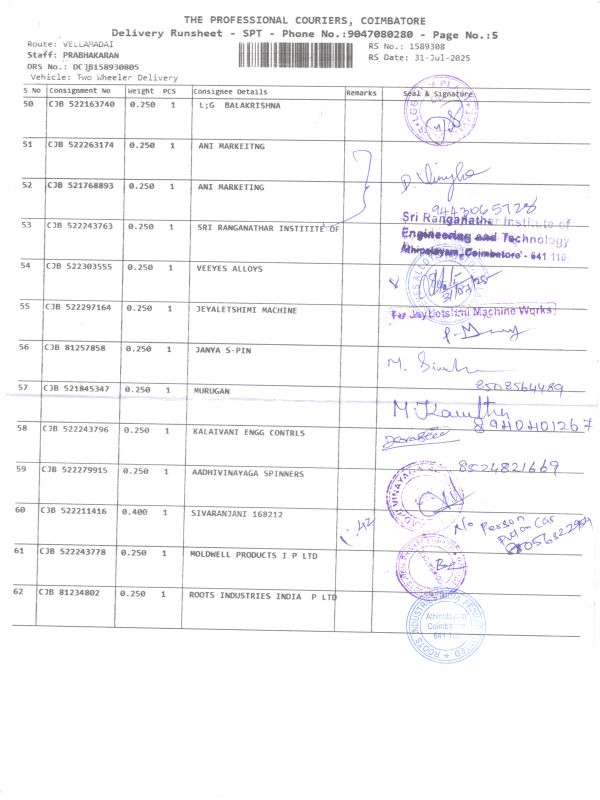 THE PROFESSIONAL COURIERS, COIMBATORE
Delivery Runsheet - SPT - Phone No.:9047080280 - Page No.:5
Route: VELLAMADAI
RS No.: 1589308
Staff: PRABHAKARAN
RS Date: 31-Jul-2025
DRS No.: DCJB158930805
Vehicle: Two Wheeler Delivery
S No Consignment No Weight PCS Consignee Details Remarks Seal & Signature
50 CJB 522163740 0.250 1 L;G BALAKRISHNA
51 CJB 522263174 0.250 1 ANI MARKEITNG
52 CJB 521768893 0.250 1 ANI MARKETING
9443065728
53 CJB 522243763 0.250 1 SRI RANGANATHAR INSTITITE OF
Sri Ranganathar Institute of
Engineering and Technology
Athipalayam, Coimbatore - 641 110
54 CJB 522303555 0.250 1 VEEYES ALLOYS
55 CJB 522297164 0.250 1 JEYALETSHIMI MACHINE
For JeyLetshmi Machine Works
56 CJB 81257858 0.250 1 JANYA S-PIN
8508564489
57 CJB 521845347 0.250 1 MURUGAN
8940401267
58 CJB 522243796 0.250 1 KALAIVANI ENGG CONTRLS
8524821669
59 CJB 522279915 0.250 1 AADHIVINAYAGA SPINNERS
60 CJB 522211416 0.400 1 SIVARANJANI 168212
1.42
No Person
Put on Car
61 CJB 522243778 0.250 1 MOLDWELL PRODUCTS I P LTD
62 CJB 81234802 0.250 1 ROOTS INDUSTRIES INDIA P LTD
ROOTS INDUSTRIES INDIA
Athipalayam
Coimbatore
641 110